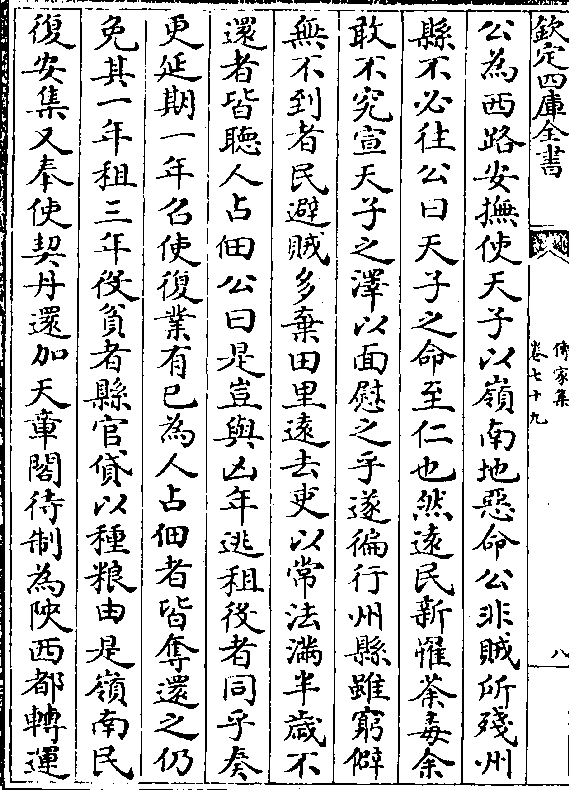 欽定四庫全書
傳家集
卷七十九
八
公為西路安撫使天子以嶺南地惡命公非賊所殘州
縣不必往公曰天子之命至仁也然遠民新罹荼毒余
敢不究宣天子之澤以面慰之乎遂徧行州縣雖窮僻
無不到者民避賊多棄田里遠去吏以常法滿半歳不
還者皆聴人占佃公曰是豈與凶年逃租役者同乎奏
更延期一年召使復業有已為人占佃者皆奪還之仍
免其一年租三年役貧者縣官貸以種粮由是嶺南民
復安集又奉使契丹還加天章閣待制為陜西都轉運